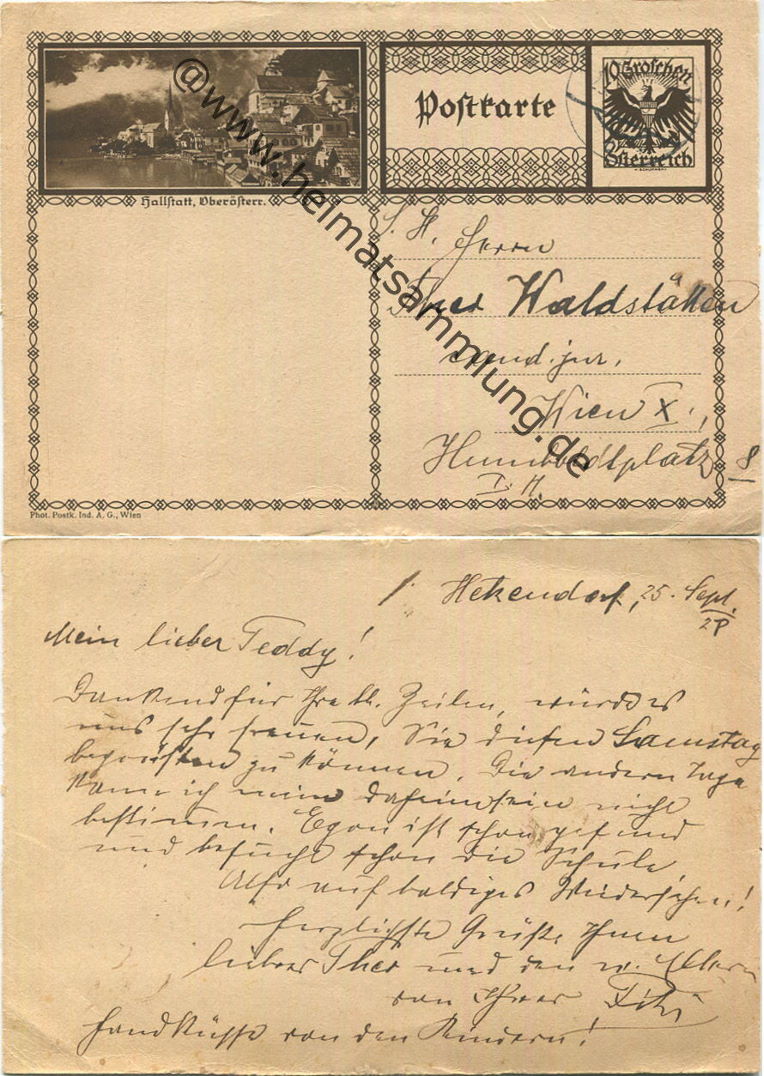 Postkarte
10 Groschen
Österreich
Hallstatt, Oberösterr.
S. H. Herrn
Waldstätten
cand. jur.
Wien X.,
Humboldtplatz 8
Phot. Postk. Ind. A. G., Wien
@www.heimatsammlung.de
Hetzendorf, 25. Sept.
28
Mein lieber Teddy!
Dankend für Ihre lb. Zeilen, würde es
uns sehr freuen, Sie diesen Samstag
begrüßen zu können. Die andern Tage
kann ich mein Daheimsein nicht
bestimmen. Egon ist schon gesund
und besucht schon die Schule
Also auf baldiges Wiedersehen!
Herzlichste Grüße Ihnen
lieber Theo und den w. Eltern
von Ihrer
Handküsse von den Kindern!